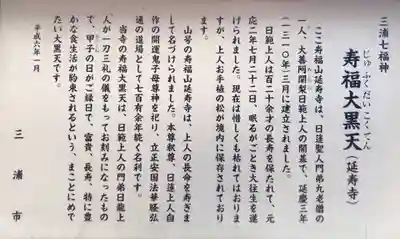 三浦七福神
じゅふくだいこくてん
寿福大黒天(延寿寺)
ここ寿福山延寿寺は、日蓮聖人門弟九老僧の
一人、大善阿闍梨日範上人の開基で、延慶三年
(一三一〇年)三月に建立されました。
日範上人は百二十余才の長寿を保たれて、元
応二年七月二十二日、眠るがごとき大往生を遂
げられました。現在は惜しくも枯れてはおりま
すが、上人お手植の松が境内に保存されており
ます。
山号の寿福山延寿寺は、上人の長命を寿ぎま
して名づけられました。本尊釈尊、日蓮上人自
作の開運鬼子母尊神を祀り、立正安国法華勝弘
通の道場として七百有余年続く名刹です。
当寺の寿福大黒天は、日範上人の門弟日龍上
人が一刀三礼の儀をもってお刻みになったもの
で、甲子の日がご縁日で、富貴、長寿、特に豊
かな食生活が約束されるという、まことにめで
たい大黒天です。
平成六年一月
三浦市